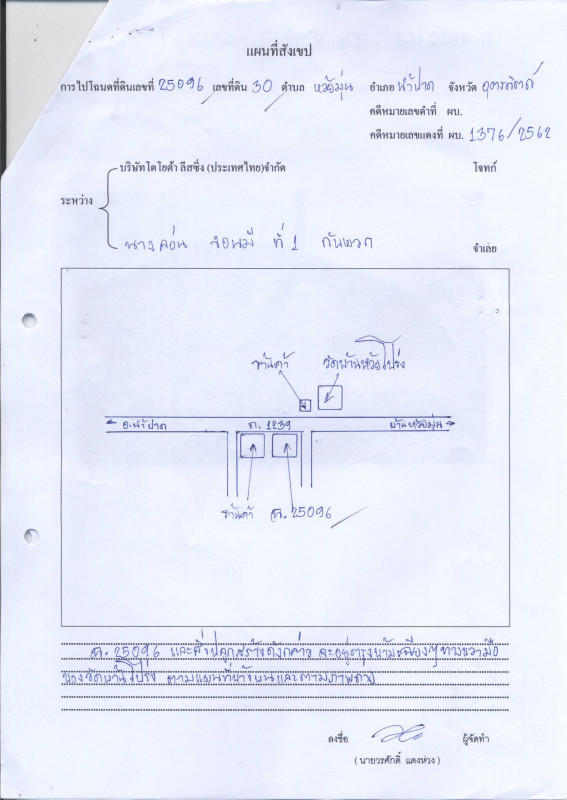 แผนที่สังเขป
การไปโฉนดที่ดินเลขที่ 25096 เลขที่ดิน 30 ตำบล ห้วยมุ่น อำเภอ น้ำปาด จังหวัด อุตรดิตถ์
คดีหมายเลขดำที่ ผบ.
คดีหมายเลขแดงที่ ผบ. 1376/2562
บริษัทโตโยต้า ลีสซิ่ง (ประเทศไทย)จำกัด โจทก์
ระหว่าง
นาง ที่ 1 กับพวก จำเลย
ร้านค้า วัดบ้านห้วยโปร่ง
อ.น้ำปาด ถ. 1239 บ้านห้วยมุ่น
ร้านค้า ฉ. 25096
ฉ. 25096 และสิ่งปลูกสร้างดังกล่าว จะอยู่ตรงข้ามเฉียงๆทางขวามือ
ของวัดบ้านโปร่ง ตามแผนที่ข้างบนและตามภาพถ่าย
ลงชื่อ ผู้จัดทำ
(นายวรศักดิ์ แดงห่วง)